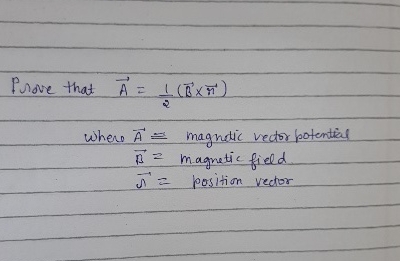 Prove that A⃗ = 1/2 (B⃗ × r⃗)
where A⃗ = magnetic vector potential
B⃗ = magnetic field
r⃗ = position vector